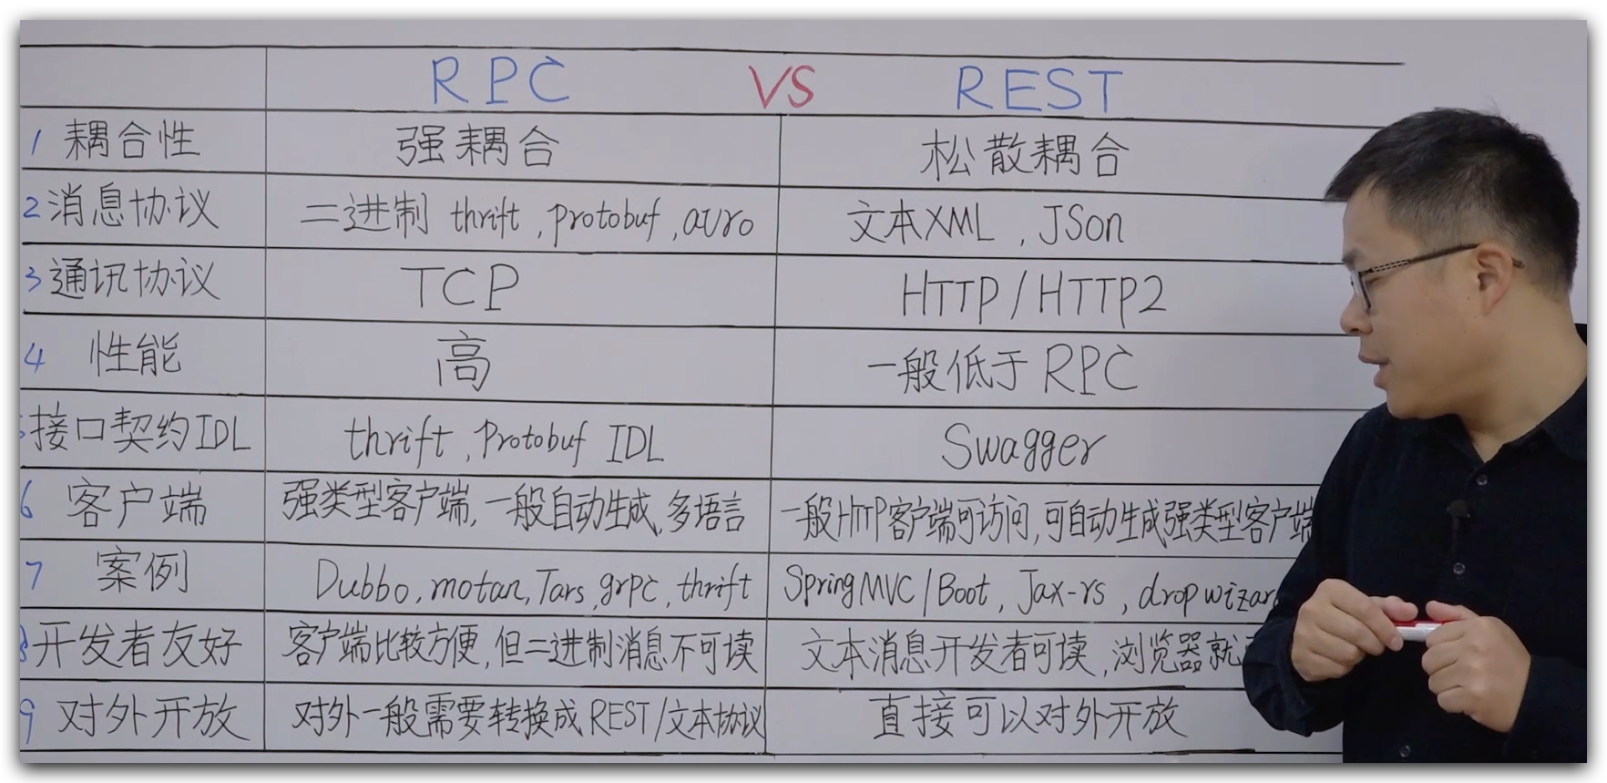 RPC VS REST
1 耦合性 强耦合 松散耦合
2 消息协议 二进制 thrift, protobuf, avro 文本XML, JSon
3 通讯协议 TCP HTTP/HTTP2
4 性能 高 一般低于RPC
接口契约IDL thrift, Protobuf IDL Swagger
6 客户端 强类型客户端, 一般自动生成, 多语言 一般HTTP客户端可访问, 可自动生成强类型客户端
7 案例 Dubbo, motan, Tars, grpc, thrift SpringMVC/Boot, Jax-rs, dropwizar
8 开发者友好 客户端比较方便, 但二进制消息不可读 文本消息开发者可读, 浏览器就
9 对外开放 对外一般需要转换成REST/文本协议 直接可以对外开放